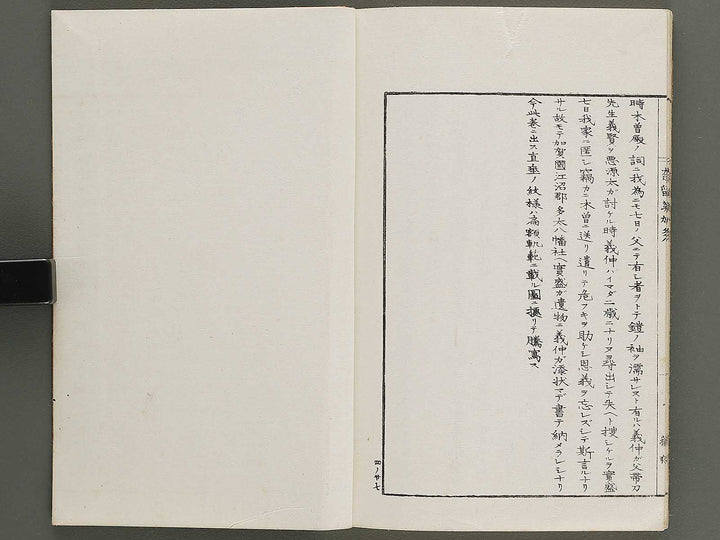 時木曽殿ノ詞ニ我為ニモ七日ノ父ニテ有シ者ヲトテ鎧ノ袖ヲ濡サレスト有ルハ義仲ガ父帯刀
先生義賢ヲ悪源太ガ討ケル時義仲ハイマダ二歳ニナリヌヲ尋出シテ失ヘト捜シケルヲ實盛
七日我家ニ匿シ竊カニ木曽ニ送リ遣リテ危フキヲ助ケシ恩義ヲ忘レズシテ斯言ルナリ
サル故モテ加賀國江沼郡多太八幡社ヘ實盛ガ遺物ニ義仲ガ添状マデ書テ納メラレシナリ
今此巻ニ出ス直垂ノ紋様ハ高額軌範ニ載ル圖ニ據リテ騰寫ス
四ノ廿七